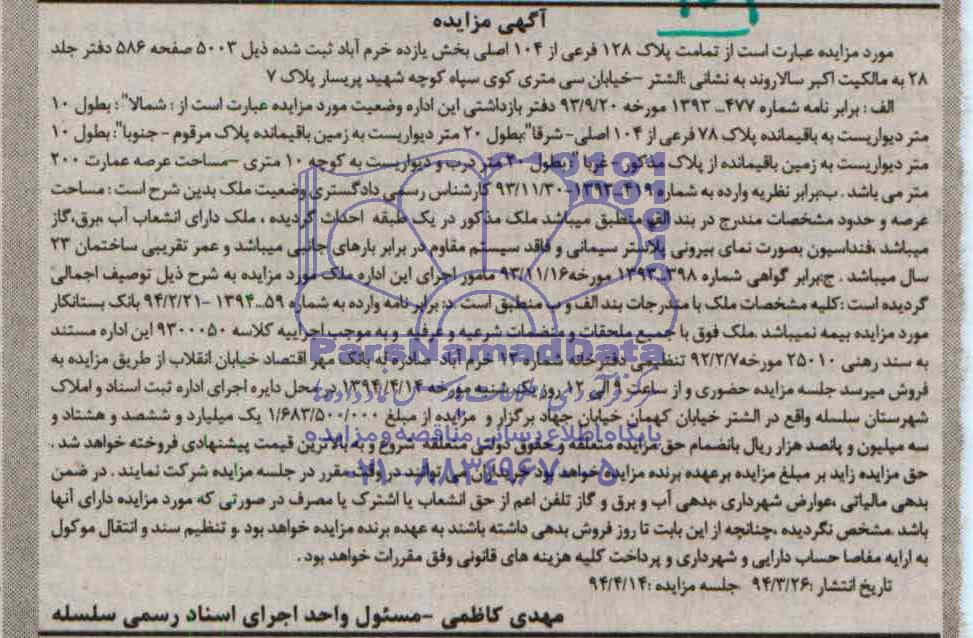 آگهی مزایده
مورد مزایده عبارت است از تمامت پلاک ۱۲۸ فرعی از ۱۰۴ اصلی بخش یازده خرم آباد ثبت شده ذیل ۵۰۰۳ صفحه ۵۸۶ دفتر جلد
۲۸ به مالکیت اکبر سالاروند به نشانی :الشتر –خیابان سی متری کوی سپاه کوچه شهید پریسار پلاک ۷
الف : برابر نامه شماره ۴۷۷_ ۱۳۹۳ مورخه ۹۳/۹/۲۰ دفتر بازداشتی این اداره وضعیت مورد مزایده عبارت است از : شمالا" : بطول ۱۰
متر دیواریست به باقیمانده پلاک ۷۸ فرعی از ۱۰۴ اصلی– شرقا":بطول ۲۰ متر دیواریست به زمین باقیمانده پلاک مرقوم – جنوبا": بطول ۱۰
متر دیواریست به زمین باقیمانده از پلاک مذکور– غربا ": بطول ۲۰ متر درب و دیواریست به کوچه ۱۰ متری –مساحت عرصه عمارت ۲۰۰
متر می باشد . ب:برابر نظریه وارده به شماره ۴۱۹_۱۳۹۳–۹۳/۱۱/۳۰ کارشناس رسمی دادگستری وضعیت ملک بدین شرح است : مساحت
عرصه و حدود مشخصات مندرج در بند الف منطبق میباشد ملک مذکور در یک طبقه احداث گردیده ، ملک دارای انشعاب آب ،برق،گاز
میباشد ،فنداسیون بصورت نمای بیرونی پلاستر سیمانی و فاقد سیستم مقاوم در برابر بارهای جانبی میباشد و عمر تقریبی ساختمان ۲۳
سال میباشد . ج:برابر گواهی شماره ۳۹۸_۱۳۹۳ مورخه۹۳/۱۱/۱۶ مامور اجرای این اداره ملک مورد مزایده به شرح ذیل توصیف اجمالی
گردیده است :کلیه مشخصات ملک با مندرجات بند الف و ب منطبق است .د: برابر نامه وارده به شماره ۵۹_۱۳۹۴ –۹۴/۲/۲۱ بانک بستانکار
مورد مزایده بیمه نمیباشد .ملک فوق با جمیع ملحقات و منضمات شرعیه و عرفیه و به موجب اجراییه کلاسه ۹۳۰۰۰۵۰ این اداره مستند
به سند رهنی ۲۵۰۱۰ مورخه۹۲/۲/۷ تنظیمی دفترخانه شماره ۹۳ خرم آباد له بانک مهر اقتصاد خیابان انقلاب از طریق مزایده به
فروش میرسد جلسه مزایده حضوری و از ساعت ۹ الی ۱۲ روز یک شنبه مورخه ۱۳۹۴/۴/۱۴ در محل دایره اجرای اداره ثبت اسناد و املاک
شهرستان سلسله واقع در الشتر خیابان کهمان خیابان جهاد برگزار و مزایده از مبلغ ۱/۶۸۳/۵۰۰/۰۰۰ یک میلیارد و ششصد و هشتاد و
سه میلیون و پانصد هزار ریال بانضمام حق مزایده متعلقه و حقوق دولتی متعلقه شروع و به بالاترین قیمت پیشنهادی فروخته خواهد شد .
حق مزایده زاید بر مبلغ مزایده برعهده برنده مزایده خواهد بود خریداران می توانند در وقت مقرر در جلسه مزایده شرکت نمایند . در ضمن
بدهی مالیاتی ،عوارض شهرداری ،بدهی آب و برق و گاز تلفن اعم از حق انشعاب یا اشترک یا مصرف در صورتی که مورد مزایده دارای آنها
باشد .مشخص نگردیده ،چنانچه از این بابت تا روز فروش بدهی داشته باشند به عهده برنده مزایده خواهد بود .و تنظیم سند و انتقال موکول
به ارایه مفاصا حساب دارایی و شهرداری و پرداخت کلیه هزینه های قانونی وفق مقررات خواهد بود.
تاریخ انتشار :۹۴/۳/۲۶ جلسه مزایده :۹۴/۴/۱۴
مهدی کاظمی –مسئول واحد اجرای اسناد رسمی سلسله
ParsNamadData
پایگاه اطلاع رسانی مناقصه و مزایده
۰۲۱–۸۸۳۴۹۶۷۰–۵